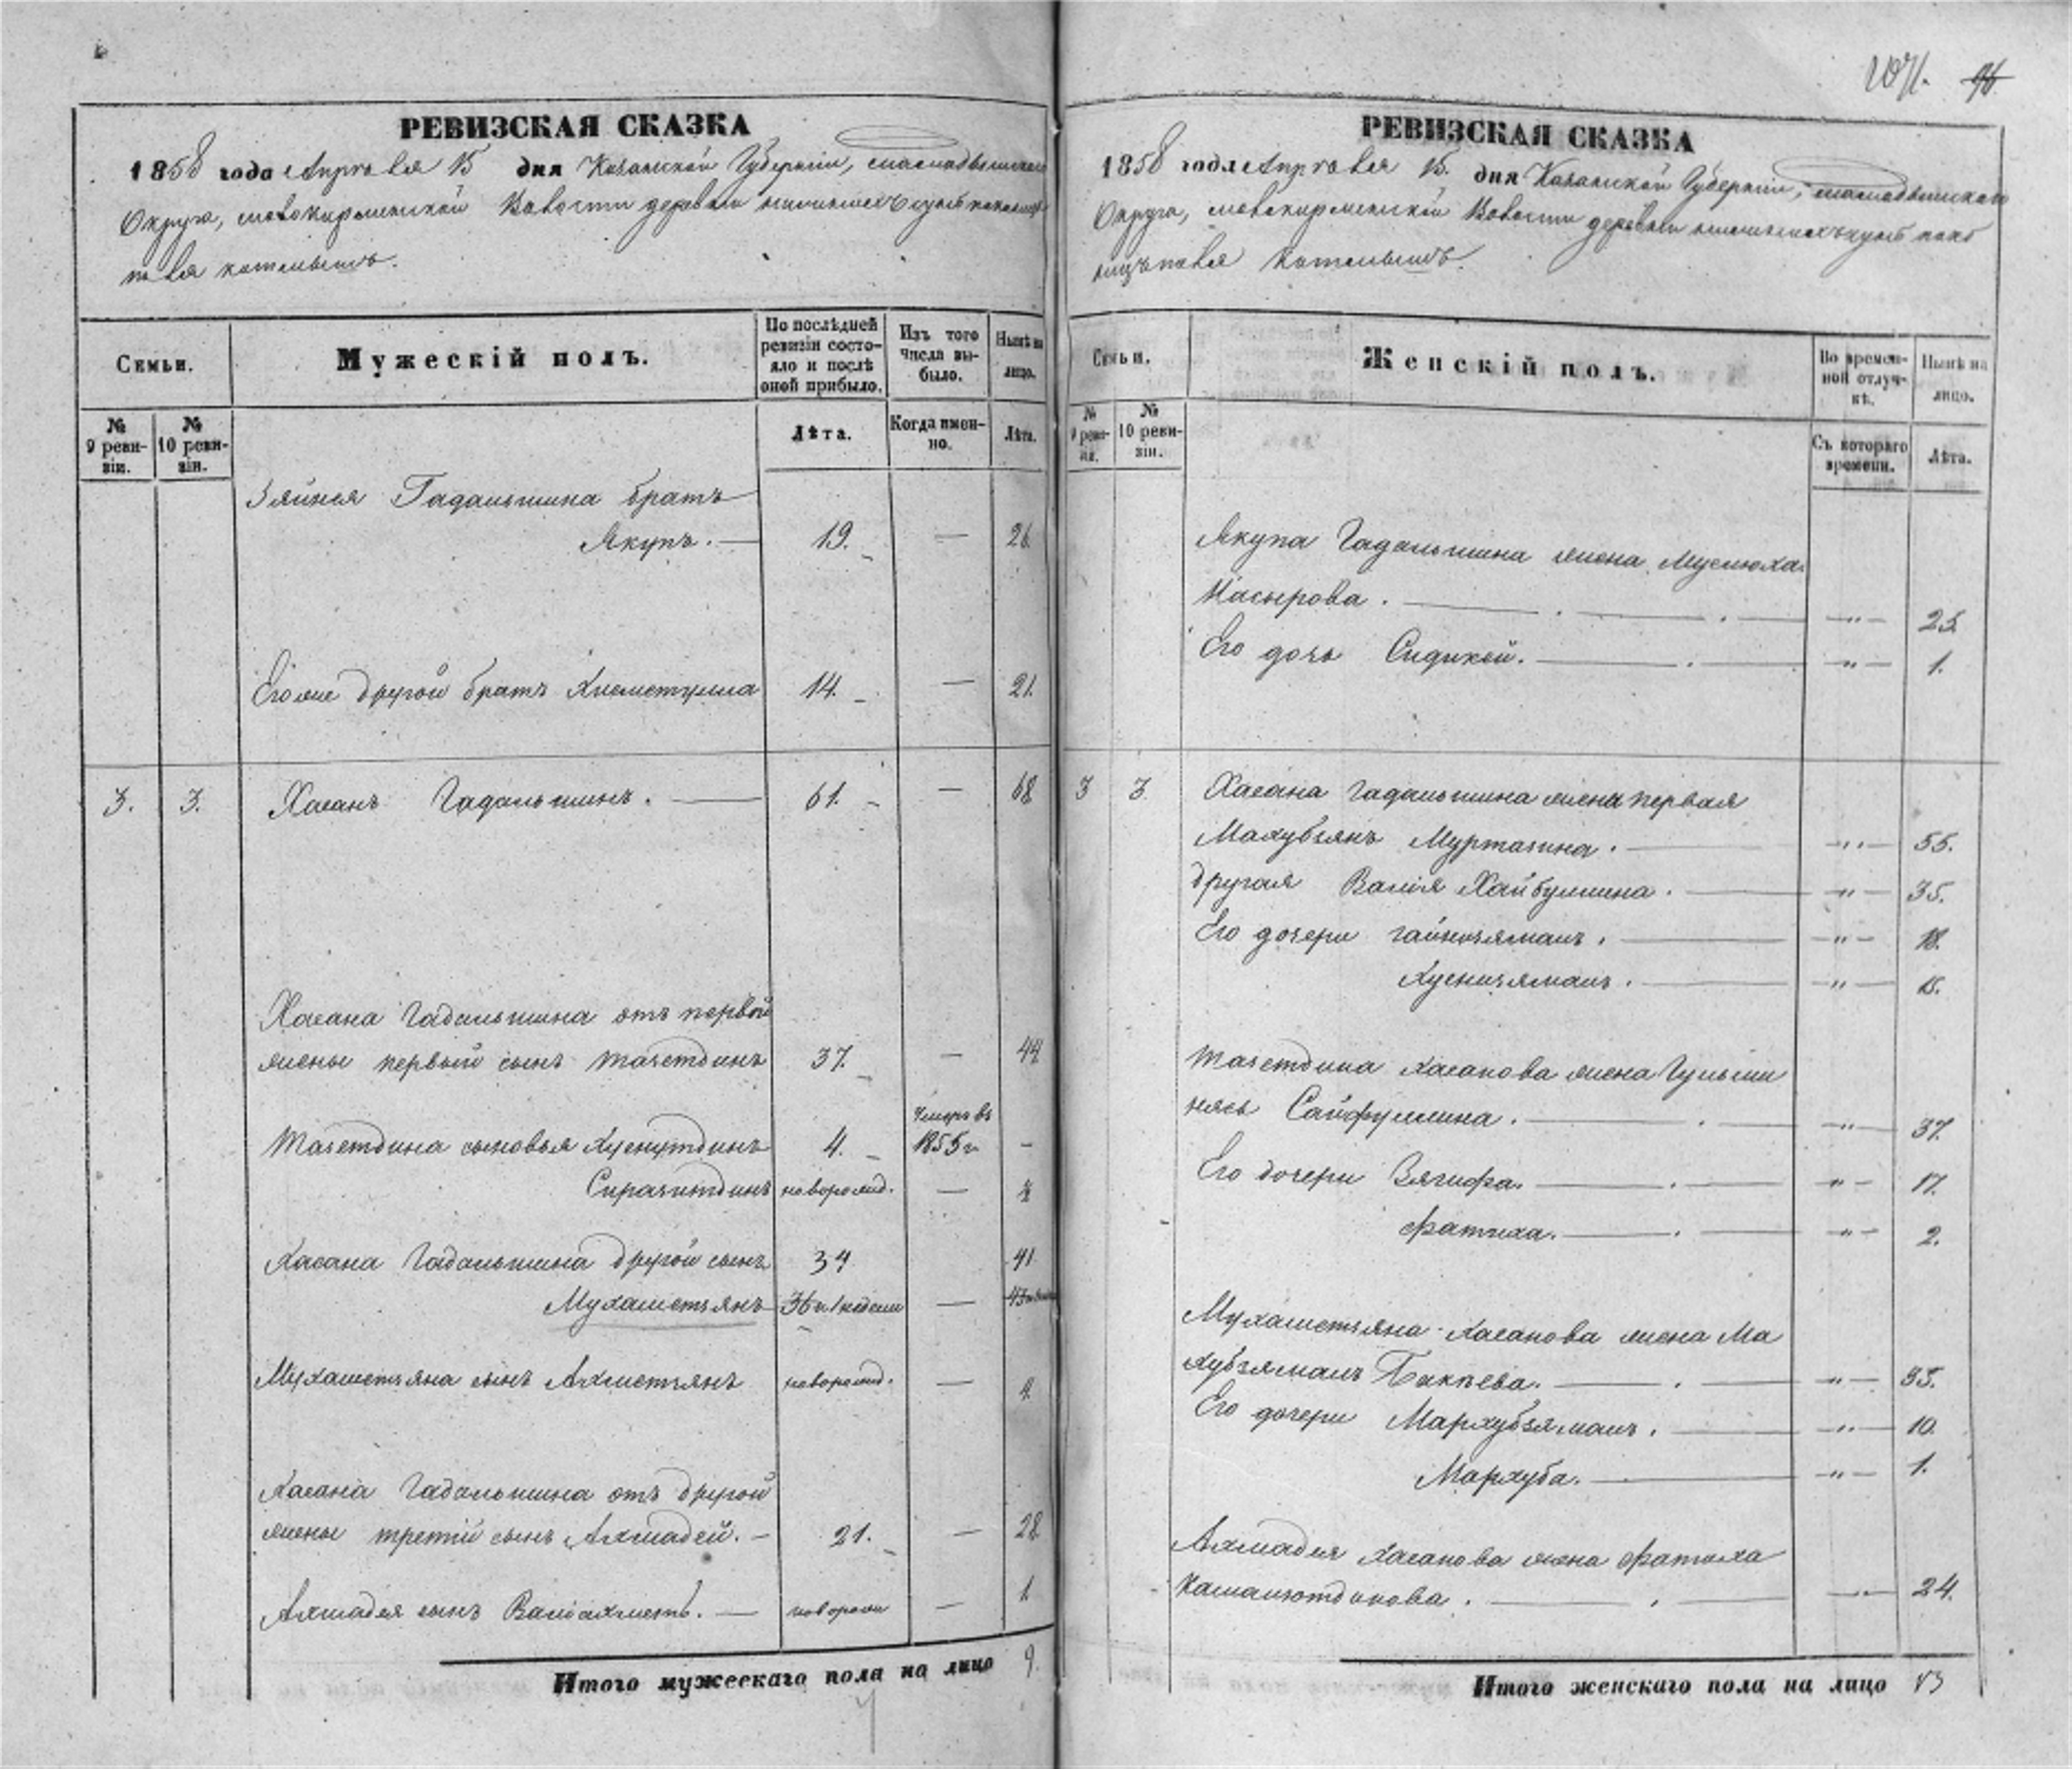 РЕВИЗСКАЯ СКАЗКА
1858 года Апреля 15 дня Казанской Губернии, Мамадышскаго
Округа, Волости деревни
Семьи.
Мужескій полъ.
По послѣдней ревизіи состояло и послѣ оной прибыло.
Изъ того числа выбыло.
Нынѣ на лицо.
№ 9 ревизіи.
№ 10 ревизіи.
Лѣта.
Когда именно.
Лѣта.
Зяйнея Гадальшина братъ
Якупъ. — 19. — 26.
Егоже другой братъ Хисметулла 14. — 21.
3. 3. Хасанъ Гадальшинъ. — 61. — 68
Хасана Гадальшина отъ первой
жены первый сынъ Тазетдинъ 37. — 44
Тазетдина сыновья Хуснутдинъ 4. Умеръ въ 1855 г. —
Сиразитдинъ новорожд. —
Хасана Гадальшина другой сынъ 34 41
Мухаметзянъ 36 и 1 недели —
Мухаметзяна сынъ Ахметзянъ новорожд. — 4.
Хасана Гадальшина отъ другой
жены третій сынъ Ахмадей. — 21. — 28
Ахмадея сынъ Валіахметъ. — новорожд — 1.
Итого мужескаго пола на лицо 9.
РЕВИЗСКАЯ СКАЗКА
1858 года Апреля 15. дня Казанской Губернии, Мамадышскаго
Округа, Волости деревни
Семьи.
Женскій полъ.
Во временной отлучкѣ.
Нынѣ на лицо.
№ 9 ревизіи.
№ 10 ревизіи.
Съ котораго времени.
Лѣта.
Якупа Гадальшина жена Муслюха
Насырова. — " — 25.
Его дочь Сидикей. — " — 1.
3 3. Хасана Гадальшина жена первая
Махубзянъ Муртазина. — " — 55.
другая Валія Хайбуллина. — " — 35.
Его дочери Гайнизямалъ. — " — 18.
Хуснизямалъ. — " — 15.
Тазетдина Хасанова жена Гульши
Сайфуллина. — " — 37.
Его дочери Зягифа. — " — 17.
Фатиха. — " — 2.
Мухаметзяна Хасанова жена Ма
хубзямалъ Бакѣева. — " — 35.
Его дочери Мархубзямалъ. — " — 10.
Мархуба. — " — 1.
Ахмадея Хасанова жена Фатиха
Камалютдинова. — " — 24.
Итого женскаго пола на лицо 13